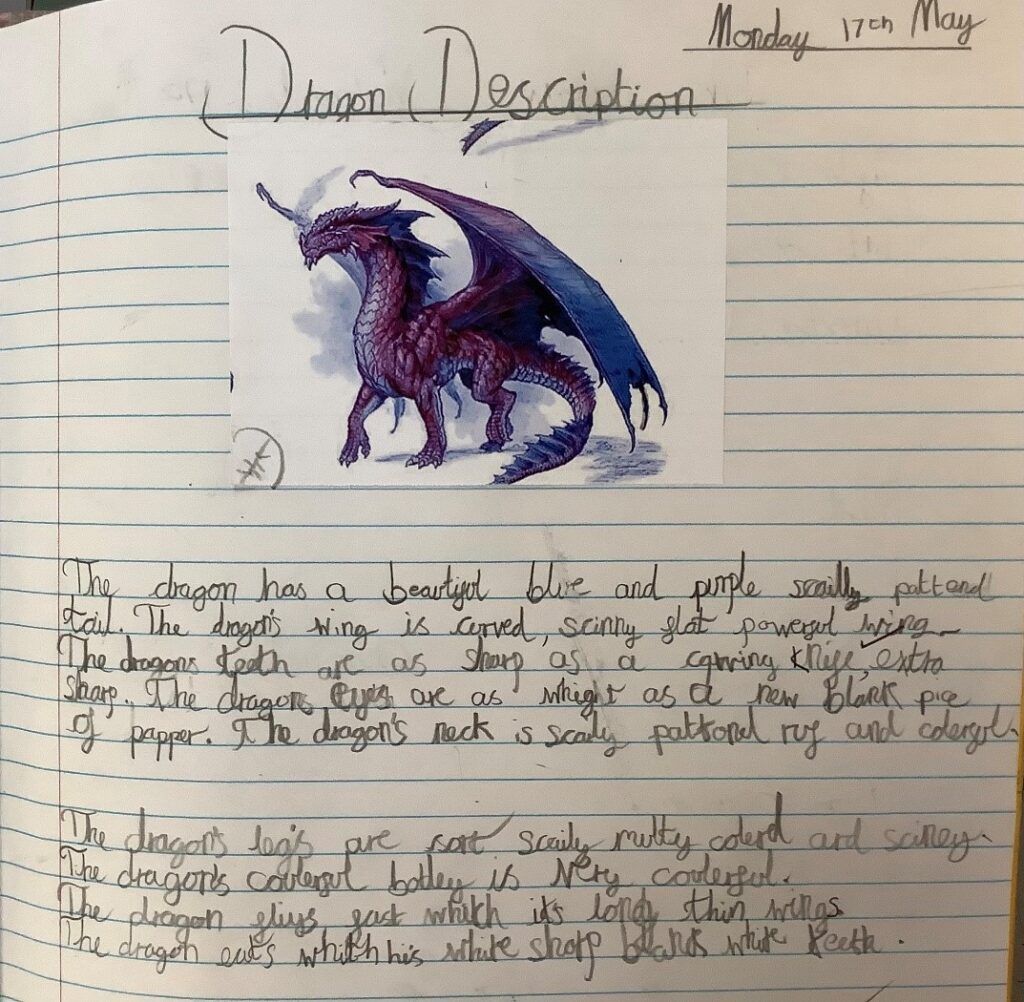 Monday 17th May
Dragon Description
The dragon has a beautiful blue and purple scailly pattend
tail. The dragon's wing is curved, scinny flat powerful wing.
The dragons teeth are as sharp as a carving knife, extra
sharp. The dragons eyes are as whight as a new blank pice
of papper. The dragon's neck is scaily pattond ruf and colerful.
The dragon's leg's are sort scaily multy colerd and sciney.
The dragon's coulerful bodey is very coulerful.
The dragon fliys fast whith it's long thin wings
The dragon eats whith his white sharp blank white teeth.